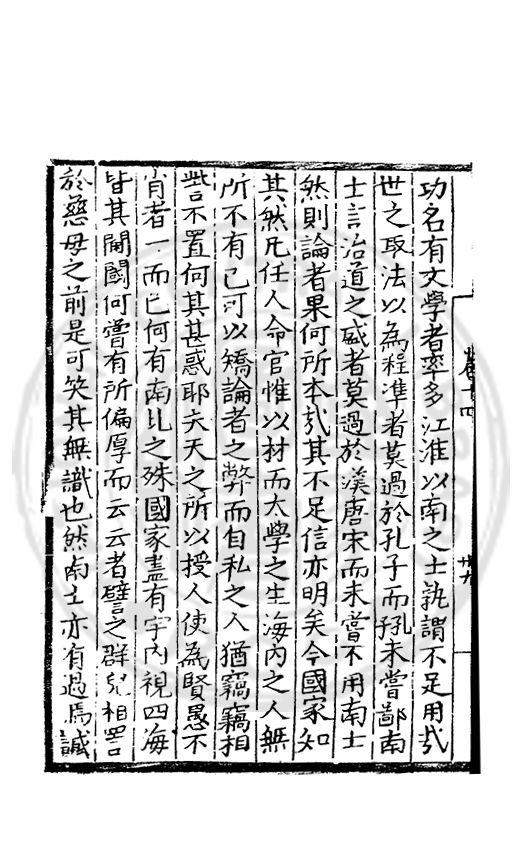 功名有文學者率多江淮以南之士孰謂不足用哉
世之取法以為程準者莫過於孔子而孔未嘗鄙南
士言治道之盛者莫過於漢唐宋而未嘗不用南士
然則論者果何所本哉其不足信亦明矣今國家知
其然凡任人命官惟以材而太學之生海內之人無
所不有已可以矯論者之弊而自私之人猶竊竊相
訾不置何其甚惑耶夫天之所以授人使為賢愚不
肖者一而已何有南北之殊國家盡有宇內視四海
皆其閫閾何嘗有所偏厚而云云者譬之群兒相詈
於慈母之前是可笑其無識也然南士亦有過焉誠
卷十四
廿九